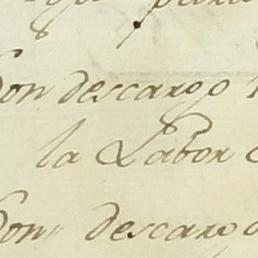 para
Don descargo
la Labor
Don descargo